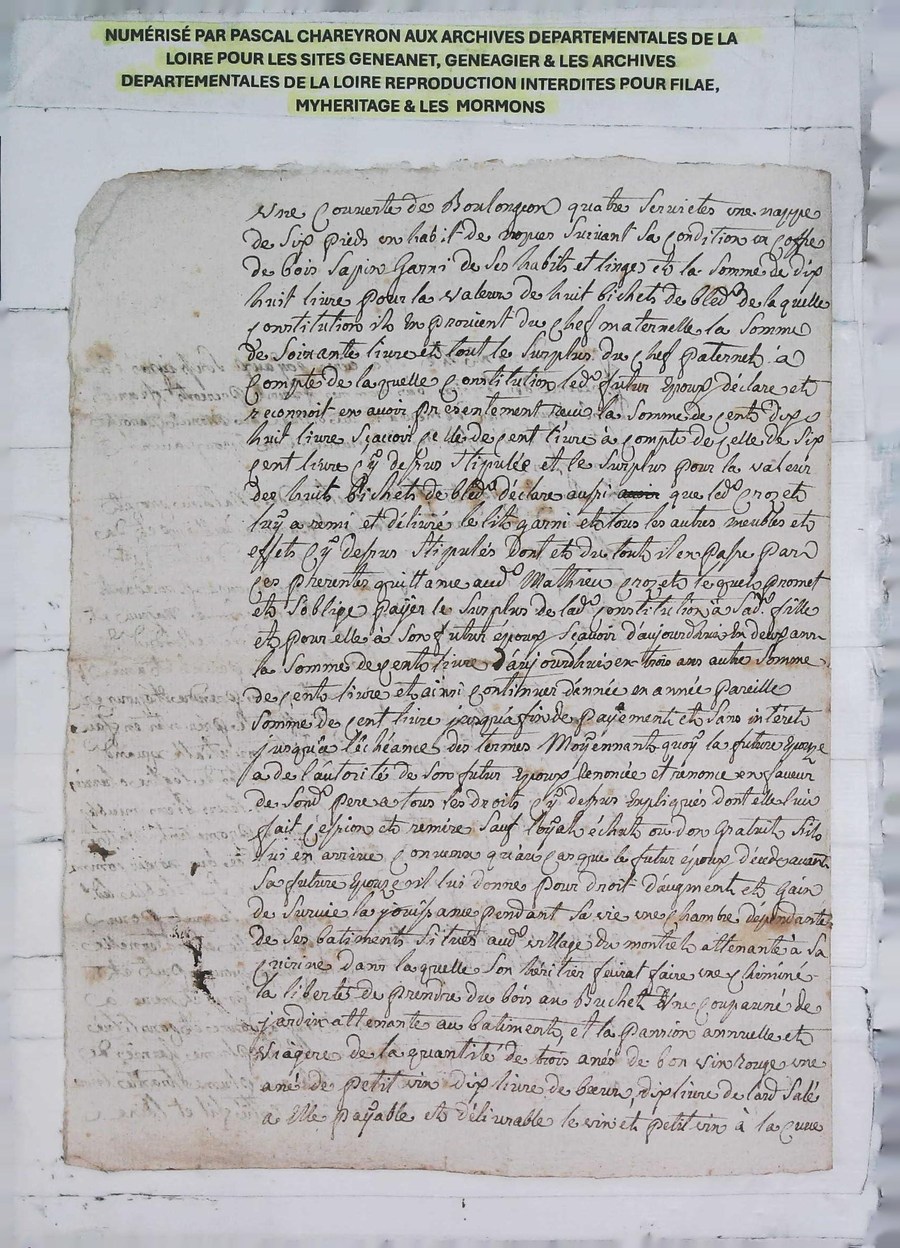 NUMÉRISÉ PAR PASCAL CHAREYRON AUX ARCHIVES DEPARTEMENTALES DE LA
LOIRE POUR LES SITES GENEANET, GENEAGIER & LES ARCHIVES
DEPARTEMENTALES DE LA LOIRE REPRODUCTION INTERDITES POUR FILAE,
MYHERITAGE & LES MORMONS
Une Couverte de Boulongeon quatre Serviettes une nappe
de Six pieds un habit de nopces Suivant Sa Condition un Coffre
de bois Sapin Garni de Ses habits et linges et la Somme de dix
huit livre pour la valeur de huit bichets de bled de laquelle
Constitution il en provient du chef maternelle la Somme
de Soixante livre et tout le Surplus du chef paternel à
Compte de la quelle Constitution led. futur Epoux déclare et
reconnoit en avoir présentement receu la Somme de cent dix
huit livre Sçavoir celle de cent livre à compte de celle de Six
cent livre cy dessus Stipulée et le Surplus pour la valeur
des huit bichets de bled déclare aussi que led. Crozet
luy a remi et délivré le lit garni et tous les autres meubles et
effets cy dessus Stipulés dont et du tout il en passe par
ces presentes quittance aud. Mathieu Crozet lequel promet
et S'oblige payer le Surplus de lad. Constitution à Sad. fille
et pour elle à Son futur époux Sçavoir d'aujourdhui en deux ans
la Somme de cent livre D'aujourdhui en trois ans autre Somme
de cent livre et ainsi Continuer d'année en année pareille
Somme de cent livre jusqu'a fin de payement et Sans intéret
jusqu'a l'échéance des termes Moyennant quoy la future Epouze
a de l'autorité de Son futur Epoux Renoncée et renonce en faveur
de Sond. pere a tous Ses droits cy dessus Expliqués dont elle lui
fait Cession et remise Sauf loyale échute ou don Gratuit S'ils
lui en arrive Convenu qu'au Cas que le futur époux décede avant
Sa future Epouze il lui donne pour droit d'augment et Gain
de Survie la jouissance pendant Sa vie une Chambre dépendante
de Ses batiments Situés aud. village du montiel attenante à Sa
Cuizine dans laquelle Son héritier feirat faire une Chiminé
la liberté de prendre du bois au Buchet Une Coupauné de
jardin attenante au batiment, et la pansion annuelle et
Viagère de la quantité de trois anés de bon vin rouge une
ané de petit vin dix livre de bœur, dix livre de lard Salé
a Elle payable et délivrable le vin et petit vin à la Cuve